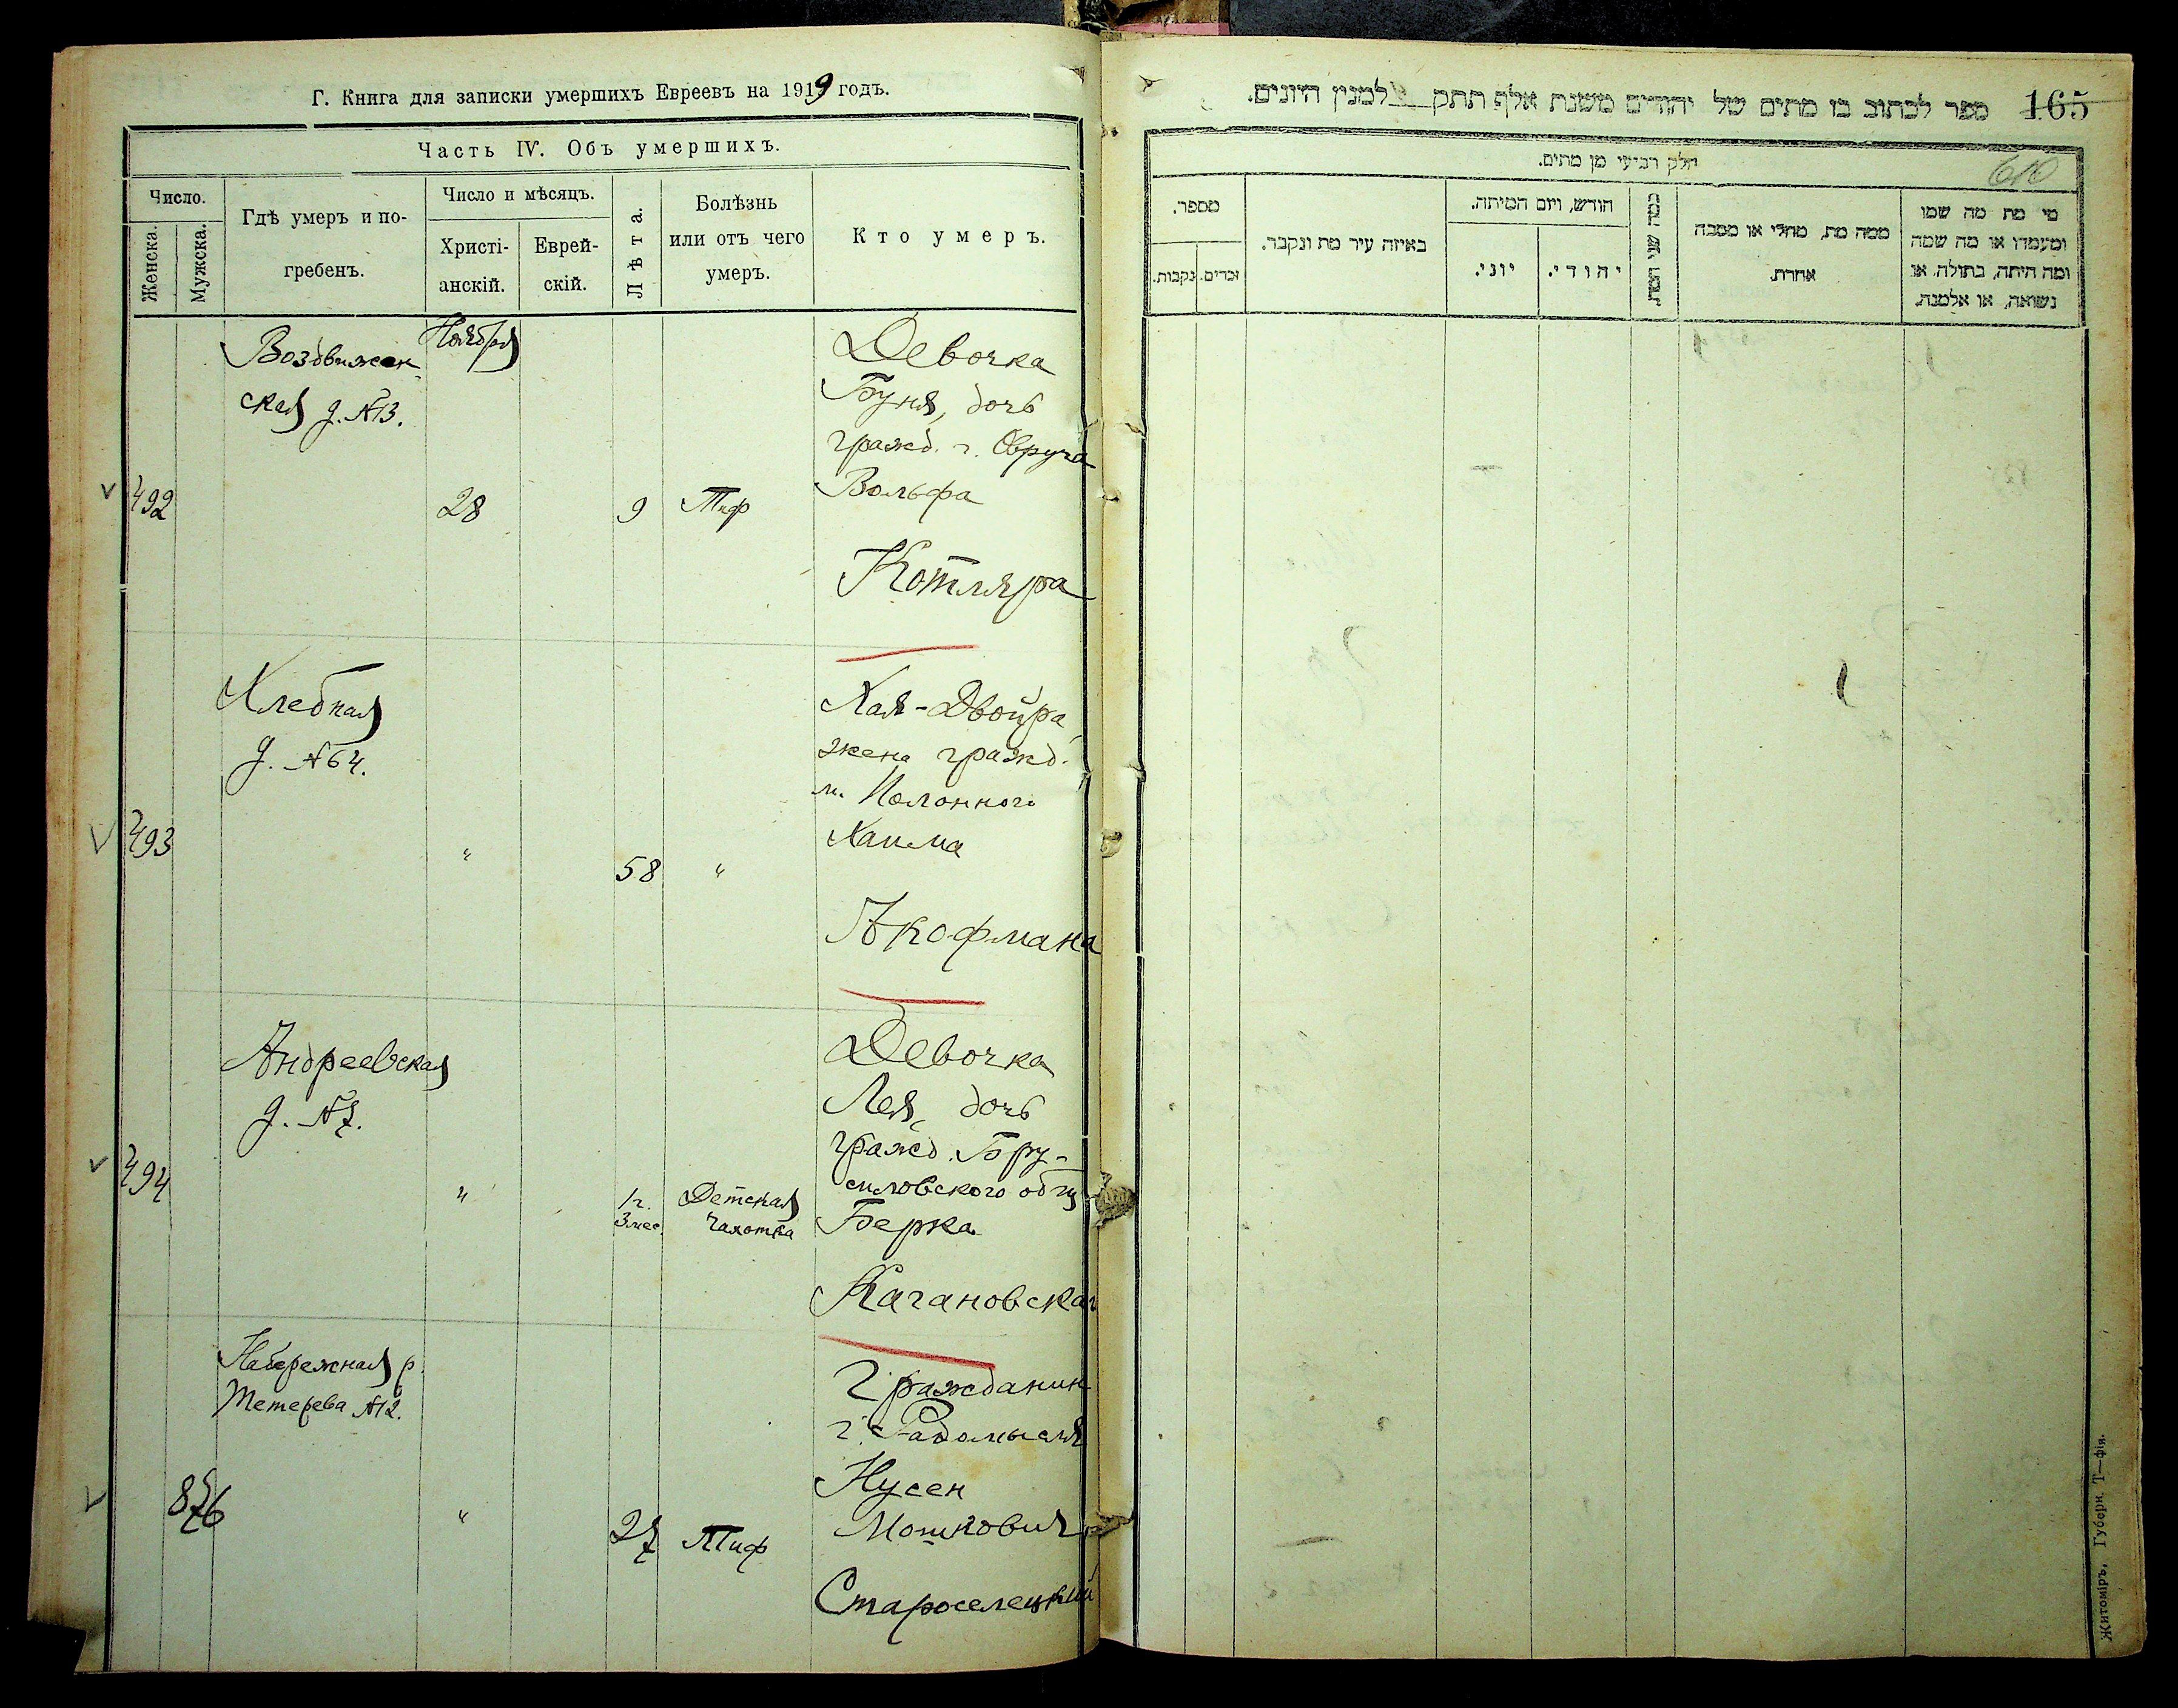 Г. Книга для записки умершихъ Евреевъ на 1919 годъ.
Часть IV. Объ умершихъ.
Число.
Женска.
Мужска.
Гдѣ умеръ и по-
гребенъ.
Число и мѣсяцъ.
Христі-
анскій.
Еврей-
скій.
Лѣта.
Болѣзнь
или отъ чего
умеръ.
Кто умеръ.
Воздвижен
ская д. №13.
Ноября
Девочка
Буня, дочь
гражд. г. Овруча
Вольфа
492
28
9
Тиф
Котляра
Хлебная
д. №64.
Хая-Двойра,
жена гражд.
м. Полонного
Хаима
493
"
58
"
Акофмана
Андреевская
д. №7.
Девочка
Лея, дочь
гражд. Бру-
силовского общ
494
"
1г.
3мес.
Детская
чахотка
Берка
Качановская
Набережная р.
Тетерева №12.
Гражданин
г. Радомысля
Нусен
Мошкович
876
"
27
Тиф
Староселецкий
ספר לכתוב בו מתים של יהודים משנת אלף תתק למנין היונים.
165
610
חלק רביעי מן מתים.
מספר.
נקבות.
זכרים.
באיזה עיר מת ונקבר.
חודש, ויום המיתה.
יוני.
יהודי.
כמה שני המת.
ממה מת, מחלי או מסבה
אחרת.
מי מת מה שמו
ומעמדו או מה שמה
ומה היתה, בתולה, או
נשואה, או אלמנה.
Житоміръ, Губерн. Т—фія.